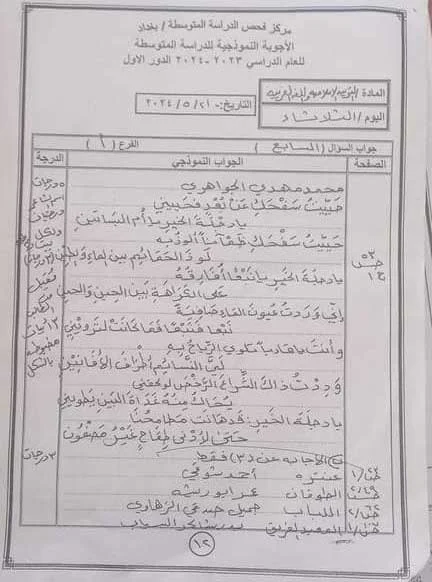 مركز فحص الدراسة المتوسطة / بغداد
الأجوبة النموذجية للدراسة المتوسطة
للعام الدراسي ٢٠٢٣ - ٢٠٢٤ الدور الاول
المادة
اليوم / الثلاثاء
التاريخ:- ٢١ / ٥ / ٢٠٢٤
جواب السؤال ( السابع ) الفرع ( أ )
الصفحة الجواب النموذجي الدرجة
محمد مهدي الجواهري
حييتُ سفحكِ عن بُعدٍ فحييني
يا دجلة الخير يا أم البساتين
حييتُ سفحكِ ظمآناً ألوذ به
لوذ الحمائم بين الماء والطين
يا دجلة الخير يا نبعاً أفارقه
على الكراهة بين الحين والحين
إني وردتُ عيون الماء صافية
نبعاً فنبعاً فما كانت لترويني
وأنت يا قارباً تلوي الرياح به
ليَّ النسائم أطراف الأفانين
وددتُ ذاك الشراع الرخص لو كفني
يُحاك منه غداة البين يطويني
يا دجلة الخير: قد هانت مطامحنا
حتى لأدنى طماح غير مضمون
الأجابة عن (٣) فقط
٣ درجات
عنترة أحمد شوقي
الطوفان عمر ابو ريشه
اللباب جميل صدقي الزهاوي
المعبد الغريق بدر شاكر السياب
١٢